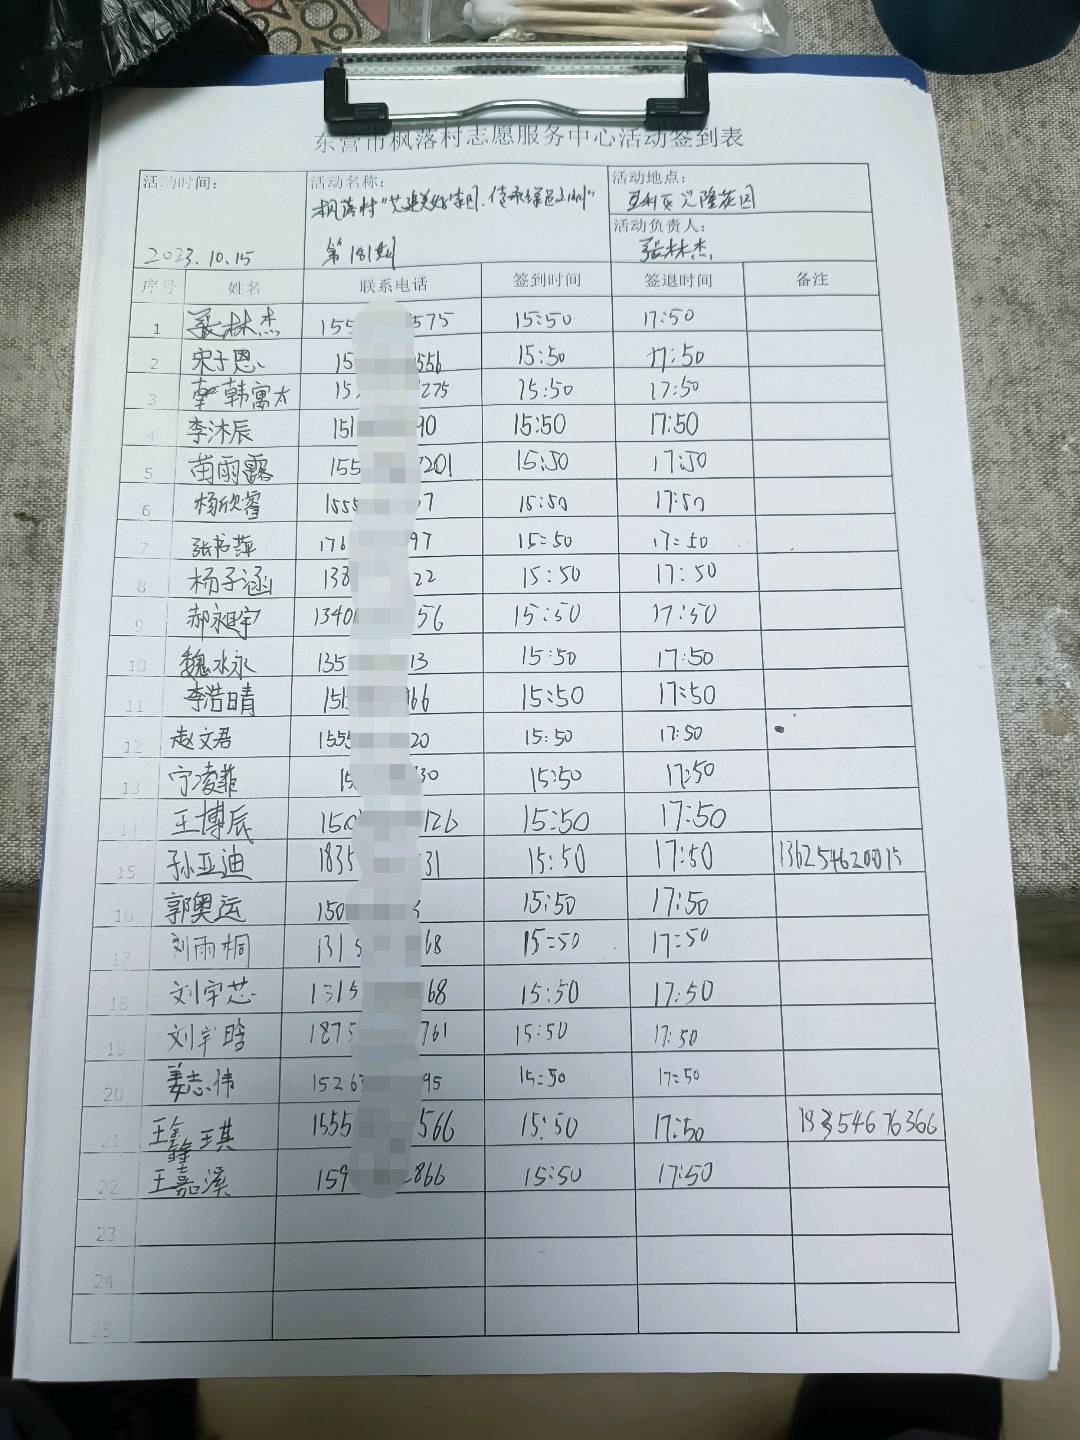 东营市枫落村志愿服务中心活动签到表
活动时间： 活动名称： 活动地点：
枫落村"共建美好家园、传承绿色文明"
活动负责人：
2023.10.15 第181期 张林杰
序号 姓名 联系电话 签到时间 签退时间 备注
1 张林杰 155 575 15:50 17:50
2 宋子恩 15 556 15:50 17:50
3 韩寓木 15 275 15:50 17:50
4 李沐辰 151 90 15:50 17:50
5 苗雨露 155 201 15:50 17:50
6 杨欣睿 1555 7 15:50 17:50
7 张书萍 176 97 15:50 17:50
8 杨子涵 138 22 15:50 17:50
9 郝昶宇 1340 56 15:50 17:50
10 魏冰永 135 13 15:50 17:50
11 李浩晴 151 66 15:50 17:50
12 赵文君 1555 20 15:50 17:50
13 宁凌菲 15 30 15:50 17:50
14 王博辰 150 126 15:50 17:50
15 孙亚迪 1835 31 15:50 17:50
16 郭奥运 150 15:50 17:50
17 刘雨桐 131 68 15:50 17:50
18 刘宇芯 1315 68 15:50 17:50
19 刘宇晗 1875 761 15:50 17:50
20 姜志伟 1526 95 15:50 17:50
21 王鑫琪 1555 566 15:50 17:50 18354676366
22 王嘉溪 159 866 15:50 17:50
23
24
25